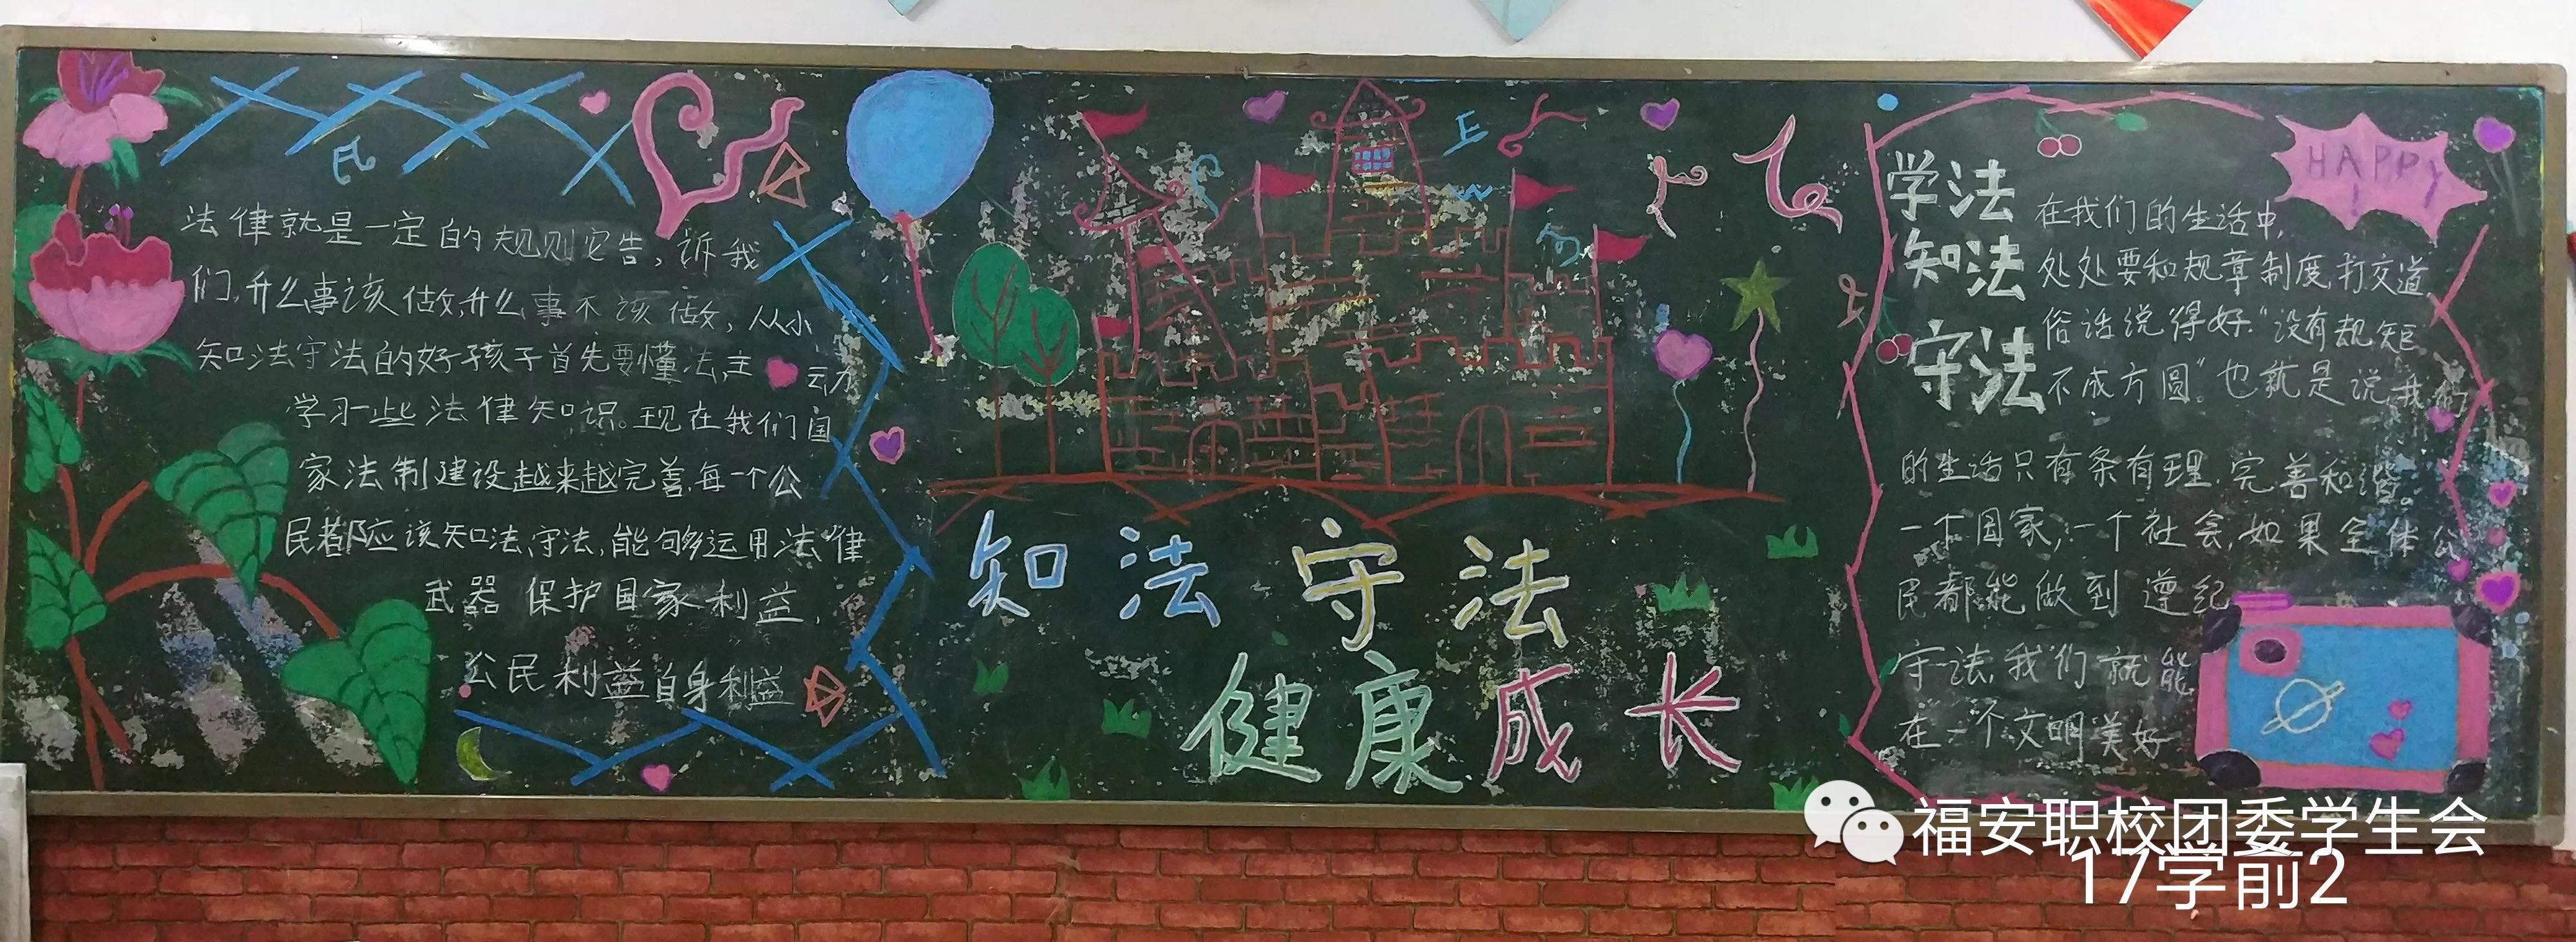 法律就是一定的规则它告,诉我
们,什么事该做,什么事不该做,从小
知法守法的好孩子首先要懂法,主动
学习一些法律知识。现在我们国
家法制建设越来越完善,每一个公
民都应该知法、守法,能够运用法律
武器 保护国家利益,
公民利益自身利益
知法守法
健康成长
HAPPY
!
学法
知法
守法
在我们的生活中,
处处要和规章制度打交道
俗话说得好:"没有规矩
不成方圆"。也就是说我们
的生活只有条有理.完善和谐。
一个国家,一个社会,如果全体公
民都能做到遵纪
守法,我们就能
在一个文明美好
福安职校团委学生会
17学前2